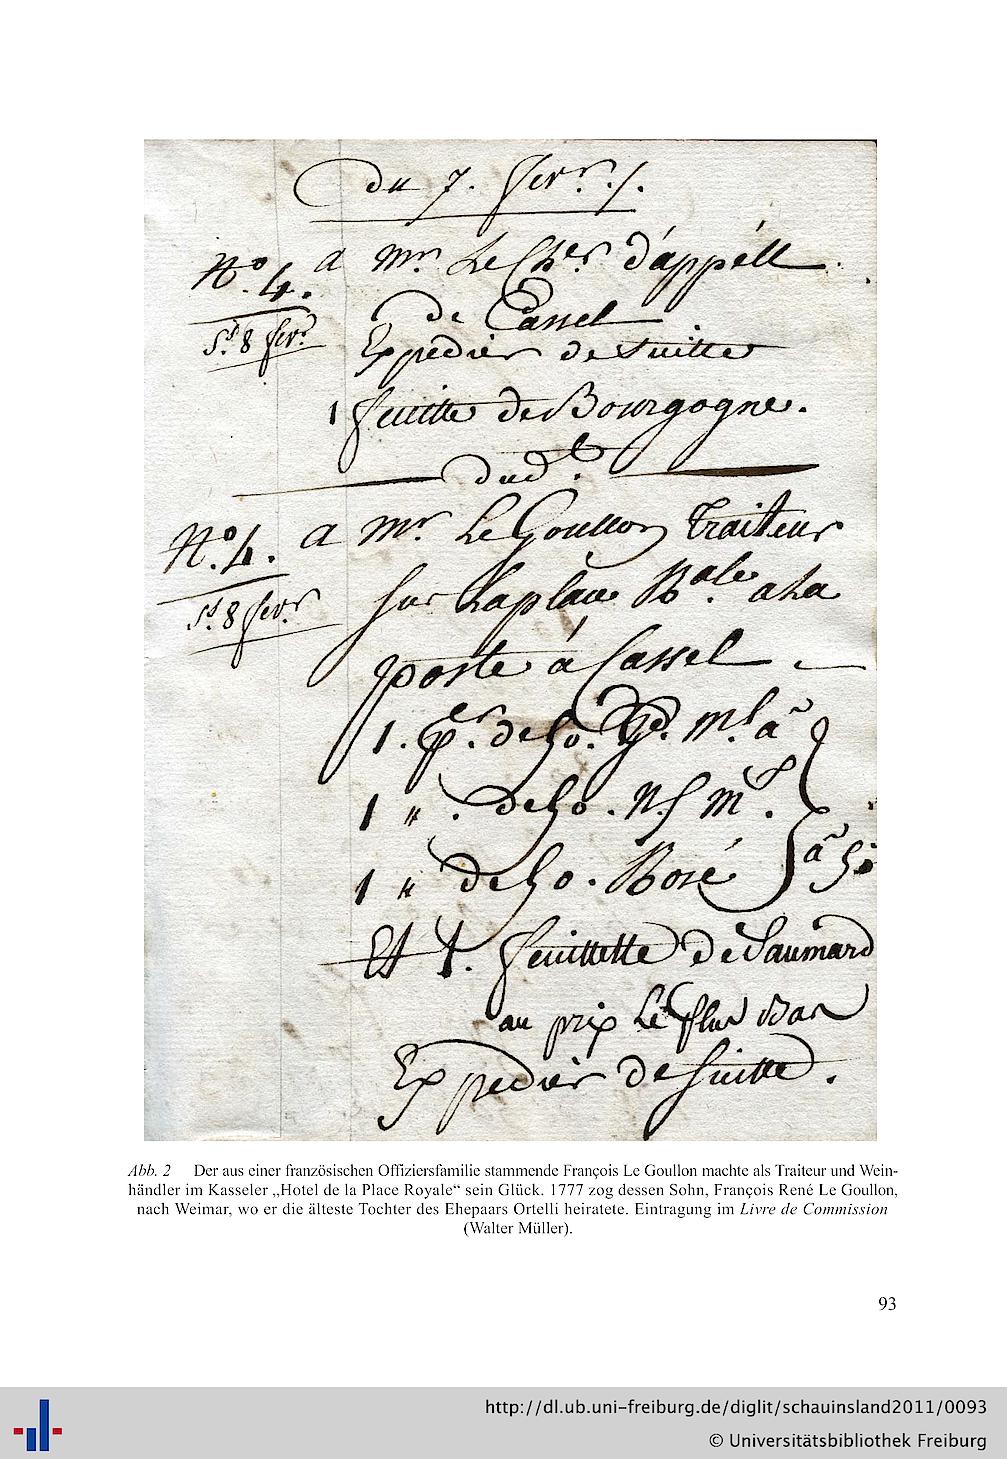 Du 7. fevr. /.
No. 4. a Mr. Le Cher d'appéll
de Cassel
St. 8 fevr.
Expedier de Suitte
1 feuitte de Bourgogne.
dud.t
No. 4. a Mr. Le Goullon Traiteur
St. 8 fevr. sur La place Rale a La
poste á Cassel
1. p.r de
1 " . de
1 " de Rosé
Et 1. feuillette de Saumard
au prix Le plus Bas
Expedier de suitte.
Abb. 2 Der aus einer französischen Offiziersfamilie stammende François Le Goullon machte als Traiteur und Wein-
händler im Kasseler „Hotel de la Place Royale“ sein Glück. 1777 zog dessen Sohn, François René Le Goullon,
nach Weimar, wo er die älteste Tochter des Ehepaars Ortelli heiratete. Eintragung im Livre de Commission
(Walter Müller).
93
http://dl.ub.uni-freiburg.de/diglit/schauinsland2011/0093
© Universitätsbibliothek Freiburg